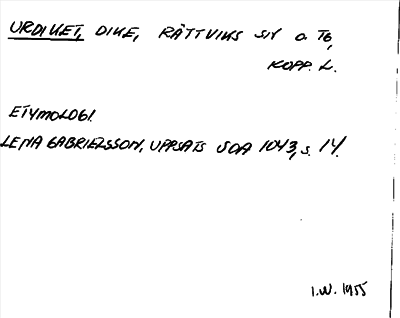 URDIKET, DIKE, RÄTTVIKS SN O. TG,
KOPP. L.
ETYMOLOGI.
LENA GABRIELSSON, UPPSATS SOA 1043, S. 14.
I.W. 1955